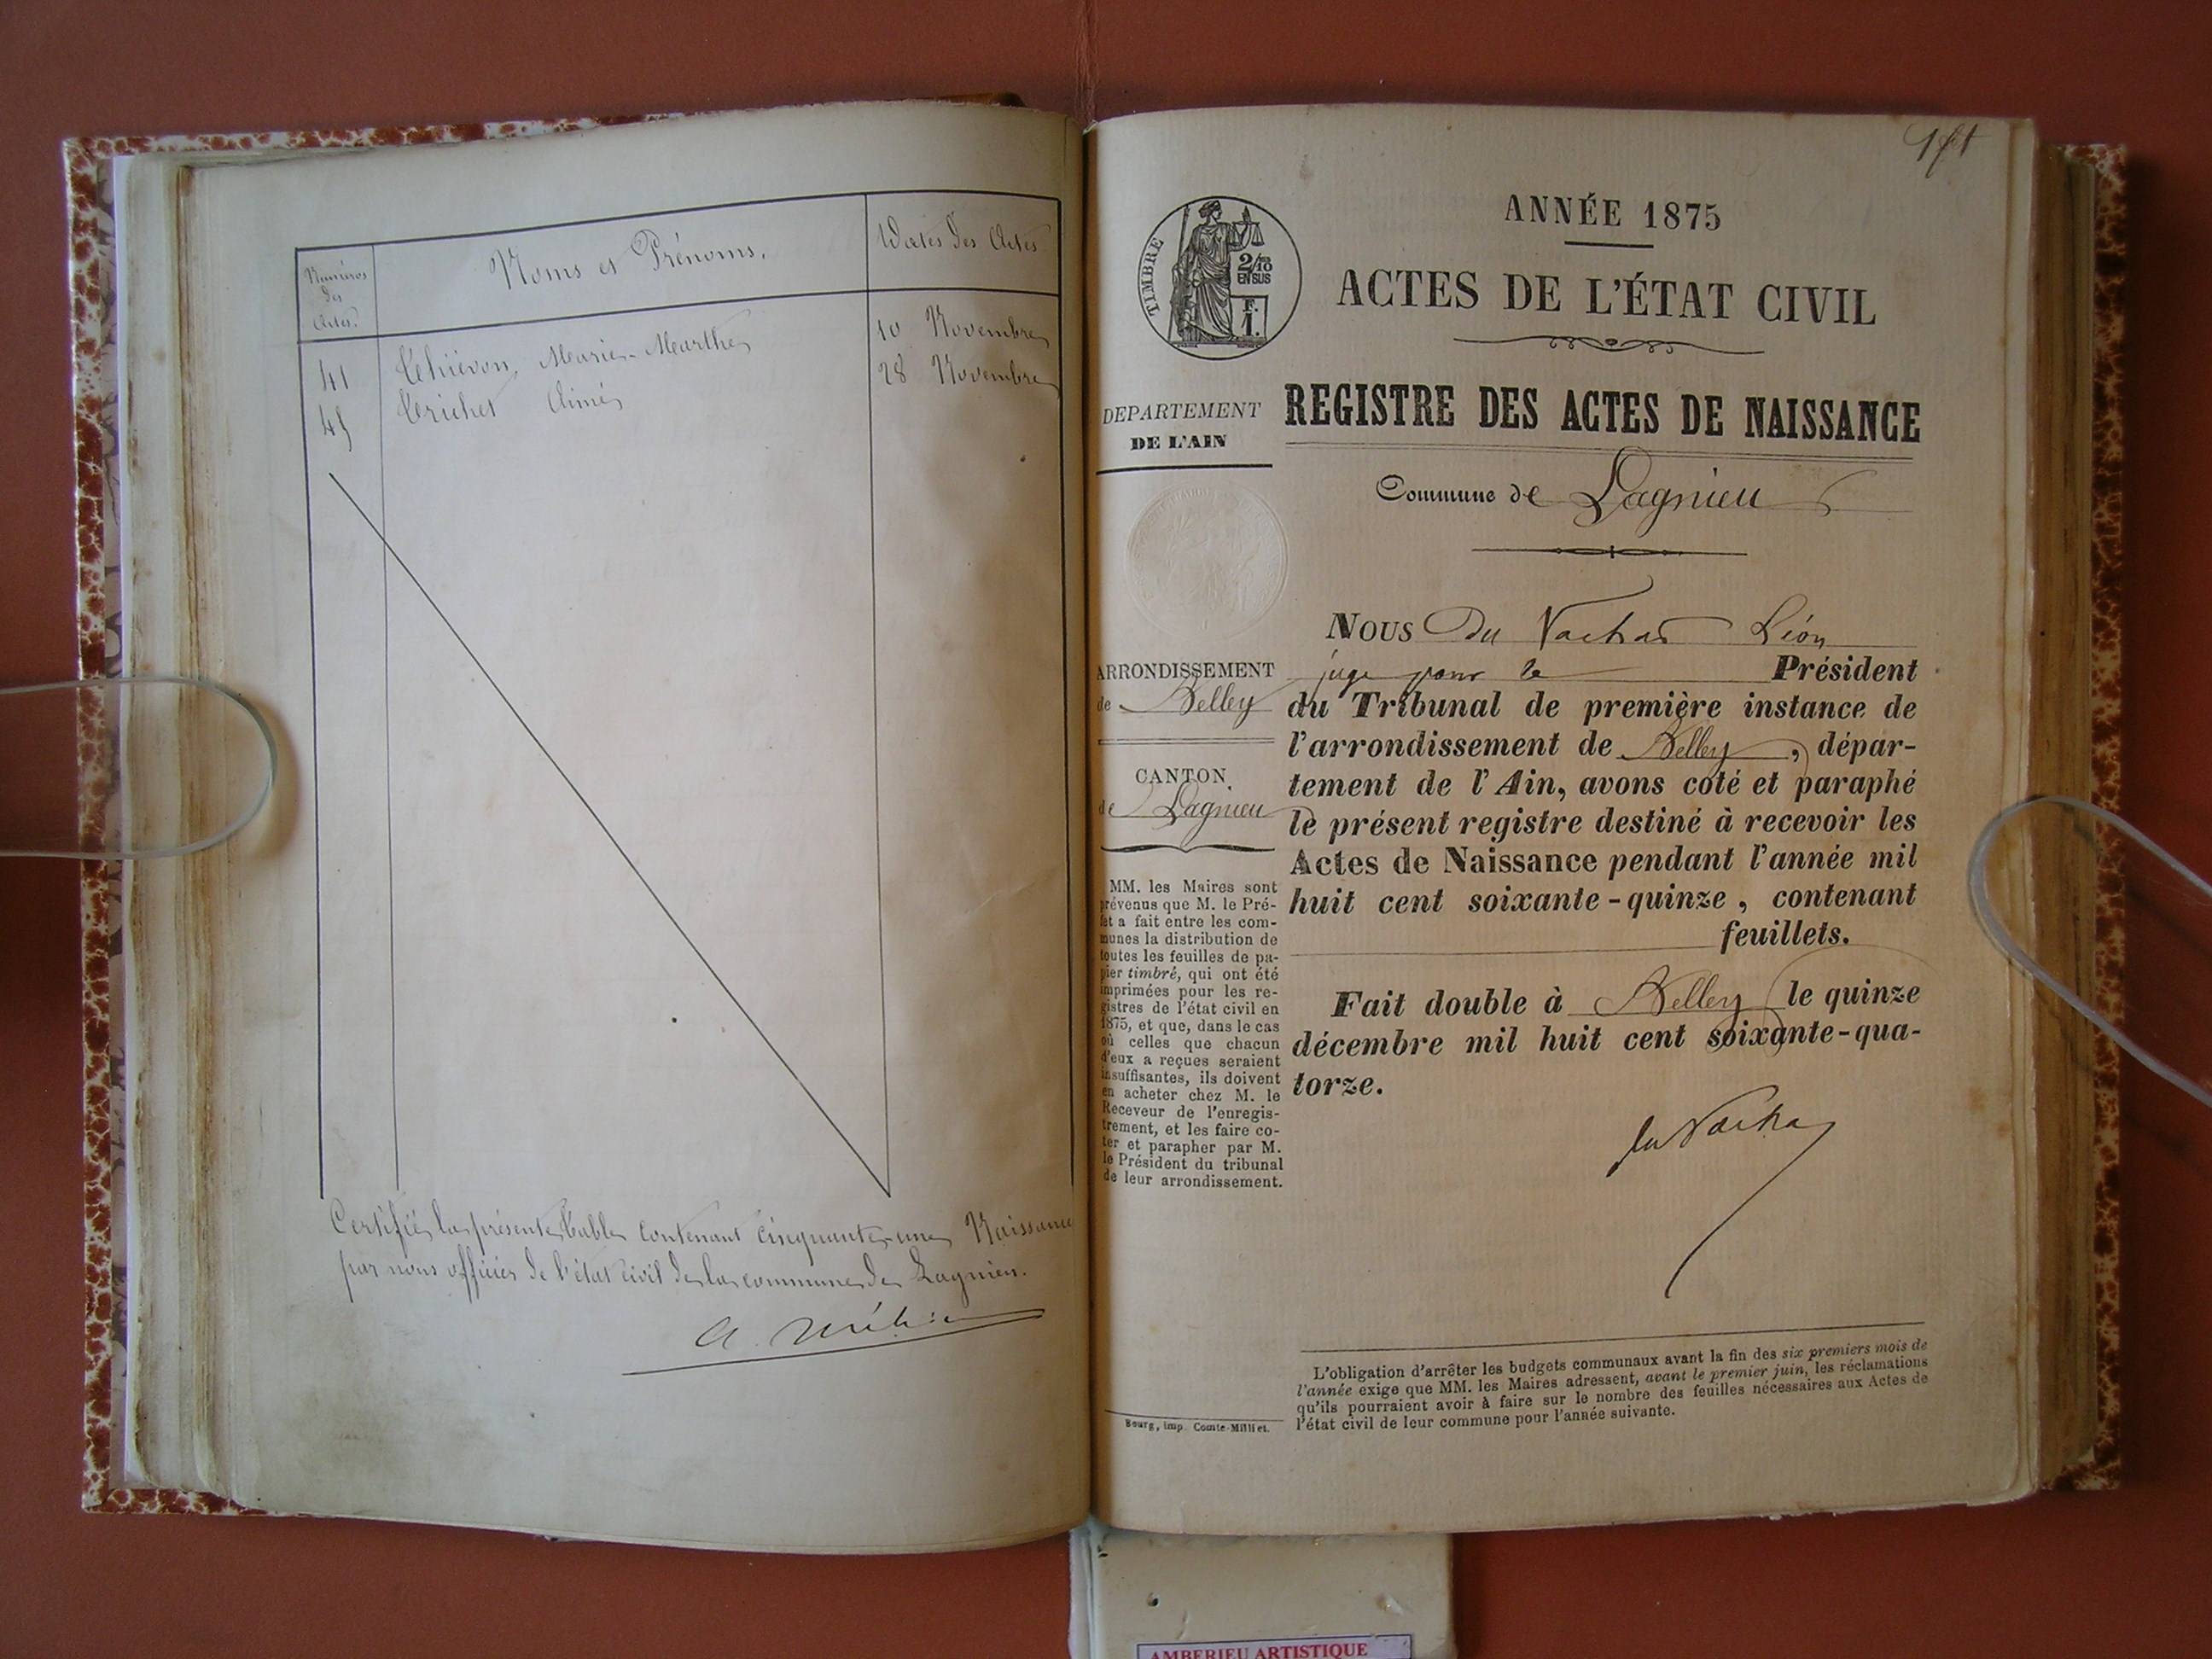 Numéros
des
Actes.
Noms et Prénoms.
Dates des Actes
41 Thiévon, Marie-Marthe 10 Novembre
45 Trichet Aimé 28 Novembre
Certifié la présente table contenant cinquante-une Naissance
par nous officier de l'état civil de la commune de Lagnieu.
1 ft
ANNÉE 1875
TIMBRE
2/10
EN SUS
F.
1.
ACTES DE L'ÉTAT CIVIL
DEPARTEMENT
DE L'AIN
REGISTRE DES ACTES DE NAISSANCE
Commune de Lagnieu
ARRONDISSEMENT
de Belley
CANTON
de Lagnieu
MM. les Maires sont
prévenus que M. le Pré-
fet a fait entre les com-
munes la distribution de
toutes les feuilles de pa-
pier timbré, qui ont été
imprimées pour les re-
gistres de l'état civil en
1875, et que, dans le cas
où celles que chacun
d'eux a reçues seraient
insuffisantes, ils doivent
en acheter chez M. le
Receveur de l'enregis-
trement, et les faire co-
ter et parapher par M.
le Président du tribunal
de leur arrondissement.
Bourg, imp. Comte-Milliet.
NOUS Du Vachat Léon
juge pour le Président
du Tribunal de première instance de
l'arrondissement de Belley, dépar-
tement de l'Ain, avons coté et paraphé
le présent registre destiné à recevoir les
Actes de Naissance pendant l'année mil
huit cent soixante-quinze, contenant
feuillets.
Fait double à Belley le quinze
décembre mil huit cent soixante-qua-
torze.
du Vachat
L'obligation d'arrêter les budgets communaux avant la fin des six premiers mois de
l'année exige que MM. les Maires adressent, avant le premier juin, les réclamations
qu'ils pourraient avoir à faire sur le nombre des feuilles nécessaires aux Actes de
l'état civil de leur commune pour l'année suivante.
AMBERIEU ARTISTIQUE